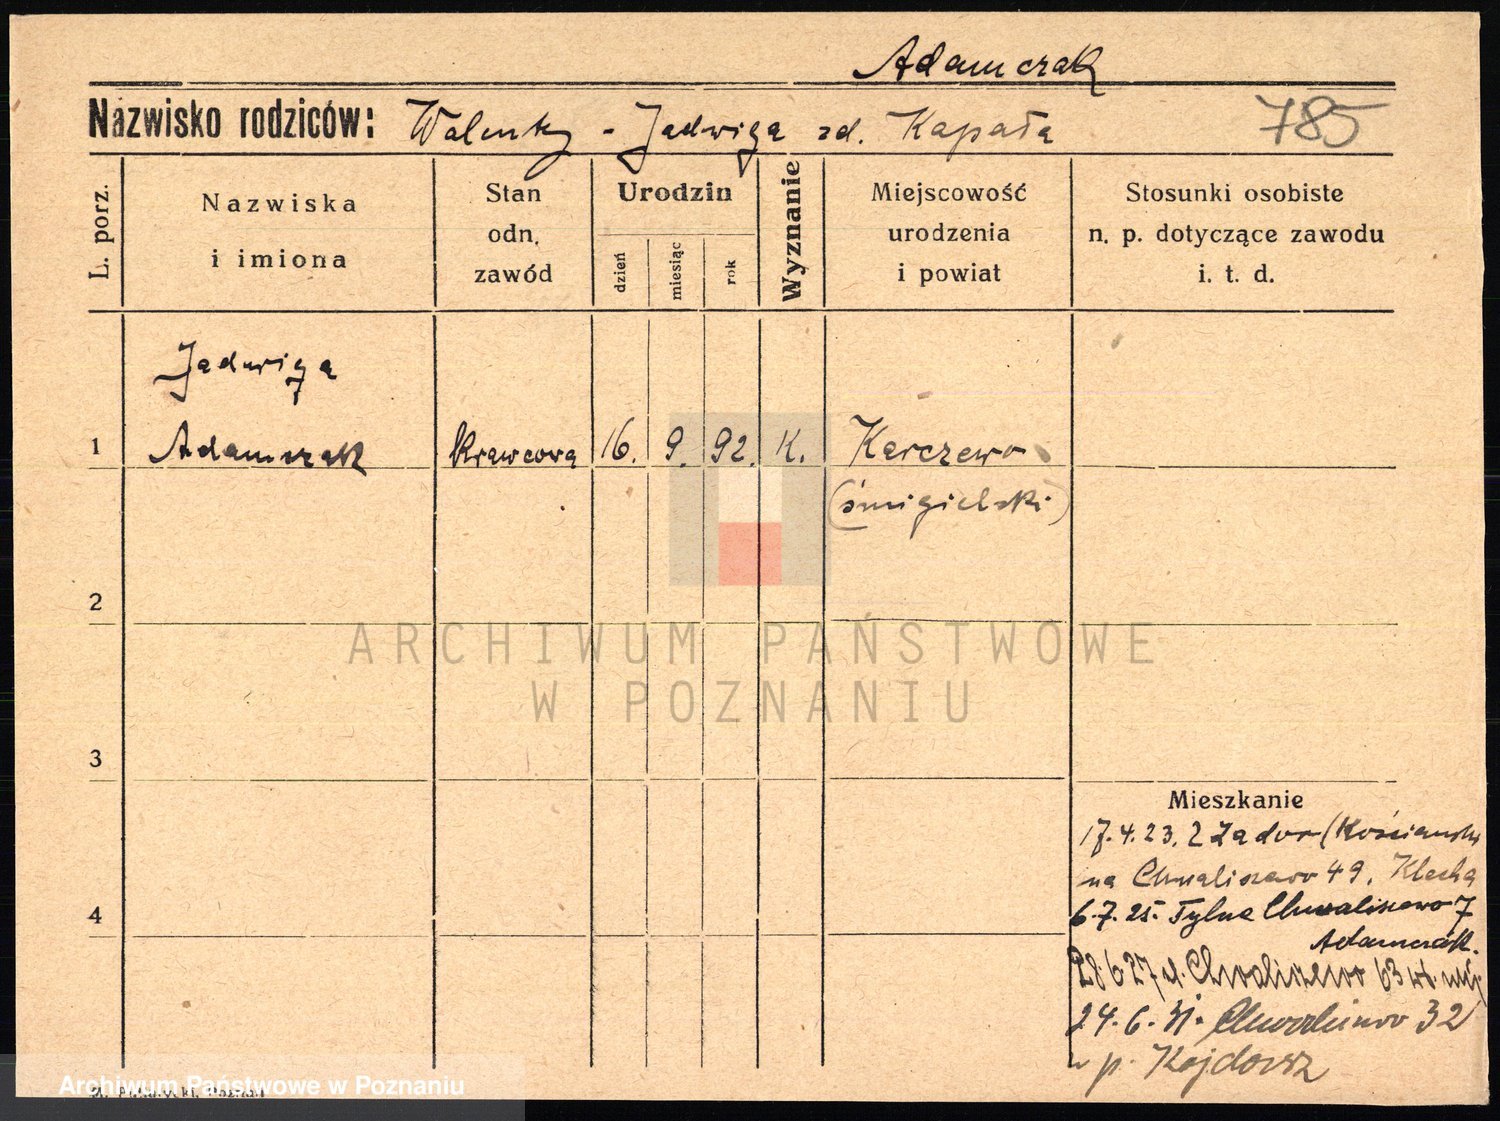 Adamczak
Nazwisko rodziców: Walenty - Jadwiga zd. Kapała
785
L. porz.
Nazwiska
i imiona
Stan
odn.
zawód
Urodzin
dzień
miesiąc
rok
Wyznanie
Miejscowość
urodzenia
i powiat
Stosunki osobiste
n. p. dotyczące zawodu
i. t. d.
Jadwiga
1 Adamczak Krawcowa 16. 9. 92. K. Karczewo
(śmigielski)
2
ARCHIWUM PAŃSTWOWE
W POZNANIU
3
Mieszkanie
17.4.23. z Żador (Kościański
na Chwaliszewo 49.
4
6.7.25. Tylne Chwaliszewo 7
Adamczak.
28.6.27 Chwaliszewo 63
24.6.31. Chwaliszewo 32
p.
Archiwum Państwowe w Poznaniu